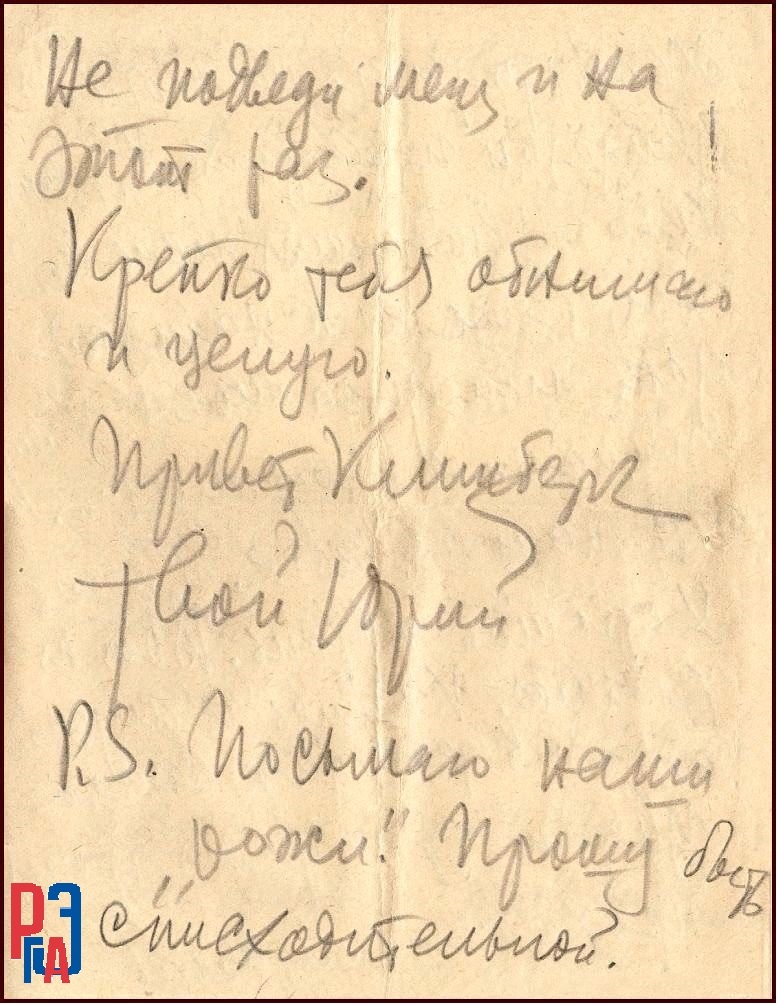 Не подведи меня и на
этот раз.
Крепко тебя обнимаю
и целую.
Привет
Твой Юрий
P.S. Посылаю наши
„рожи“. Прошу быть
снисходительной.
РГАЭ